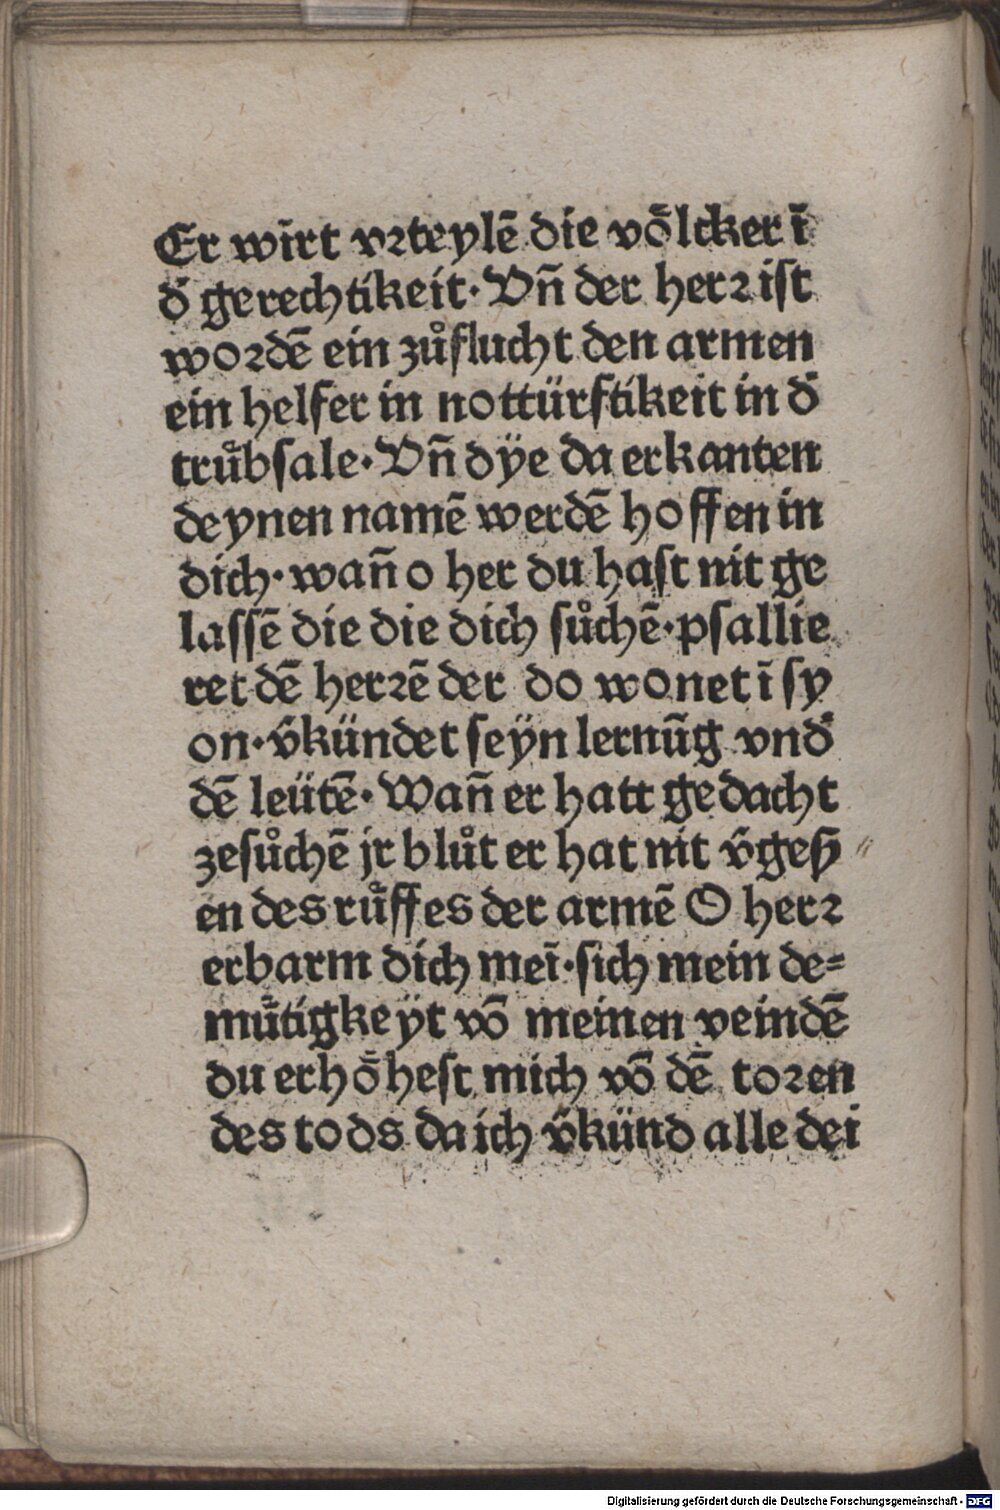 Er wirt vrteylē die vȍlcker ī
d̄ gerechtikeit· Vn̄ der herr ist
wordē ein zůflucht den armen
ein helfer in nottürftikeit in d̄
trůbsale· Vn̄ dÿe da erkanten
deynen namē werdē hoffen in
dich· wan̄ o her du hast nit ge
lassē die die dich sůchē· psallie
ret dē herrē der do wonet ī sy
on· v̄kündet seÿn lernūg vnd̄
dē leütē· Wan̄ er hatt gedacht
zesůchē jr blůt er hat nit v̄geß 〃
en des růffes der armē O herr
erbarm dich meī· sich mein de⸗
můtigkeyt vō meinen veindē
du erhȍhest mich vō dē toren
des tods da ich v̄künd alle dei
Digitalisierung gefördert durch die Deutsche Forschungsgemeinschaft - DFG